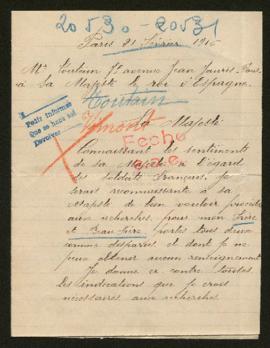 20530-20531
Paris 21 Février 1916
Mr Toutain 57 avenue Jean Jaurès Paris
à Sa Majesté le roi d'Espagne
Toutain
Majesté
Fecho
Connaissant les sentiments
de sa Majesté à l'égard
des Soldats Français, je
serais reconnaissant à sa
Majesté de bien vouloir procéder
aux recherches, pour mon frère
et Beau frère, portés tous deux
comme disparus et dont je ne
peux obtenir aucun renseignement
Je donne ci contre toutes
les indications que je crois
nécessaires aux recherches